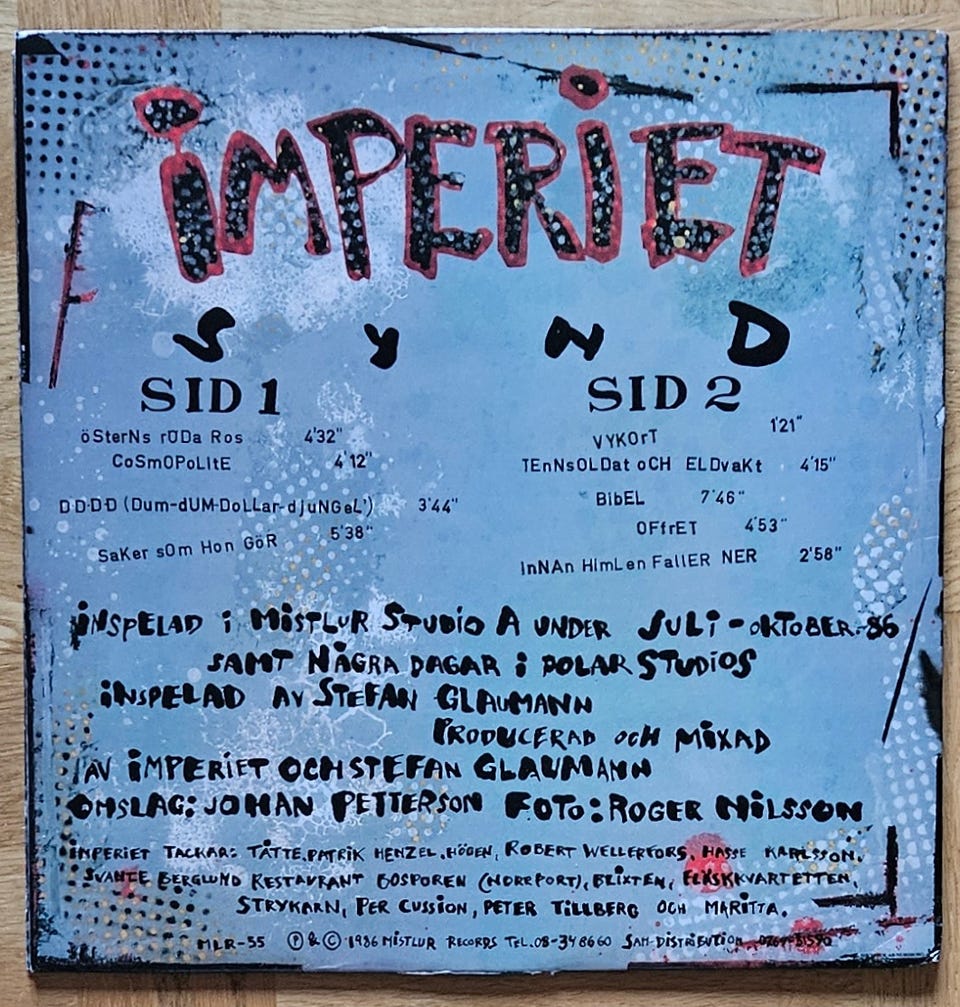 iMPERiET
SYND
SID 1
öSterNs rÖDa Ros 4'32"
CoSmOPoLItE 4'12"
D·D·D·D (Dum-dUM-DoLLar-dJuNGeL') 3'44"
SaKer sOm Hon GöR 5'38"
SID 2
VYKOrT 1'21"
TEnNsOLDat oCH ELDvaKt 4'15"
BibEL 7'46"
OFfrET 4'53"
InNAn HimLen FallER NER 2'58"
iNSPELAD i MiSTLUR STUDiO A UNDER JULi - OKTOBER -86
SAMT NÅGRA DAGAR i POLAR STUDiOS
iNSPELAD AV STEFAN GLAUMANN
PRODUCERAD OCH MiXAD
AV iMPERiET OCH STEFAN GLAUMANN
OMSLAG: JOHAN PETTERSON FOTO: ROGER NiLSSON
iMPERIET TACKAR: TÅTTE, PATRIK HENZEL, HÖGEN, ROBERT WELLERFORS, HASSE KARLSSON,
SVANTE BERGLUND RESTAURANT BOSPOREN (NORRPORT), BLIXTEN, FLÄSKKVARTETTEN,
STRYKARN, PER CUSSION, PETER TILLBERG OCH MARITTA.
MLR-55 Ⓟ & © 1986 MISTLUR RECORDS TEL. 08-34 86 60 SAM-DISTRIBUTION